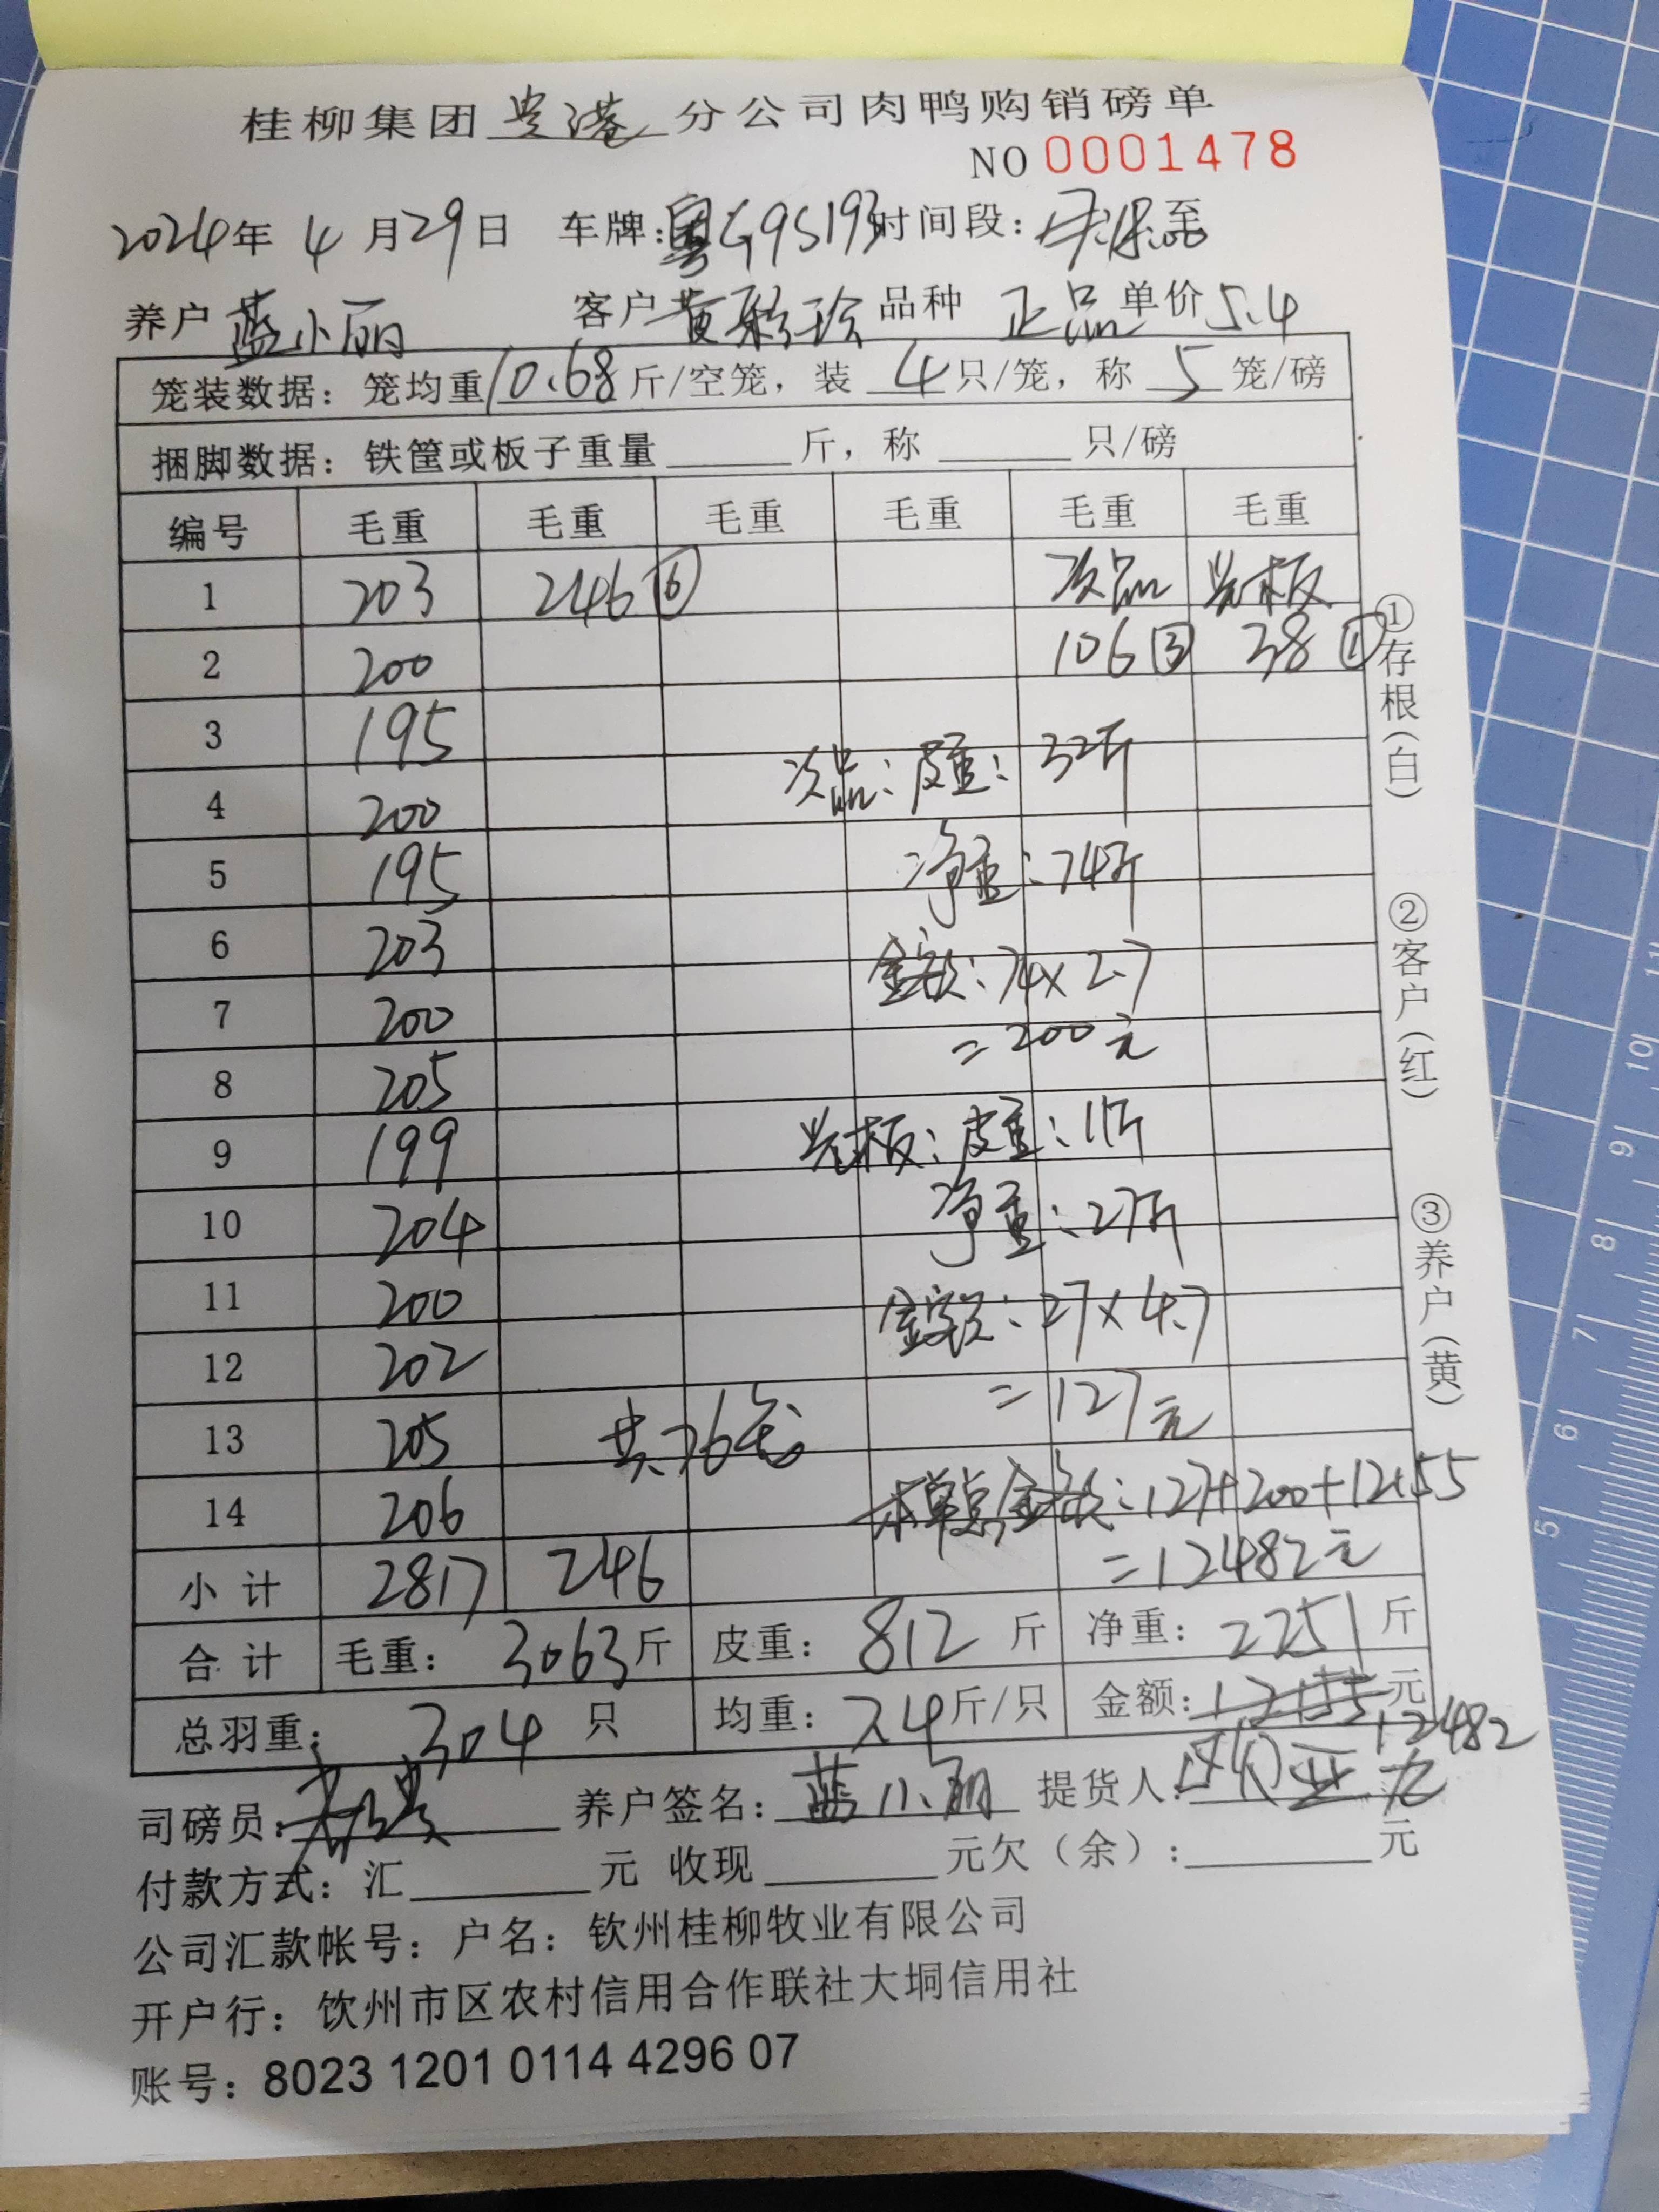 桂柳集团贵港分公司肉鸭购销磅单
NO 0001478
2024年 4月29日 车牌:粤G9S193 时间段: 至
养户 蓝小丽 客户 黄 珍 品种 正品 单价 5.4
笼装数据: 笼均重 10.68 斤/空笼, 装 4 只/笼, 称 5 笼/磅
捆脚数据: 铁筐或板子重量 斤, 称 只/磅
编号 毛重 毛重 毛重 毛重 毛重 毛重
1 203 246 ⑥ 次品 光板
2 200 106 ③ 38 ①
3 195
次品: 皮重: 32斤
4 200
5 195 净重: 74斤
6 203
金额: 74×2.7
7 200
=200元
8 205
9 199 光板: 皮重: 11斤
10 204 净重: 27斤
11 200 金额: 27×4.7
12 202
=127元
13 205 共76笼
14 206 本单总金额: 127+200+12155
=12482元
小计 2817 246
合计 毛重: 3063斤 皮重: 812 斤 净重: 2251 斤
总羽重: 304 只 均重: 7.4斤/只 金额: 12155 元
12482
司磅员: 养户签名: 蓝小丽 提货人:
付款方式: 汇 元 收现 元欠(余): 元
公司汇款帐号: 户名: 钦州桂柳牧业有限公司
开户行: 钦州市区农村信用合作联社大垌信用社
账号: 8023 1201 0114 4296 07
①存根(白)
②客户(红)
③养户(黄)
11
10
9
8
7
6
5